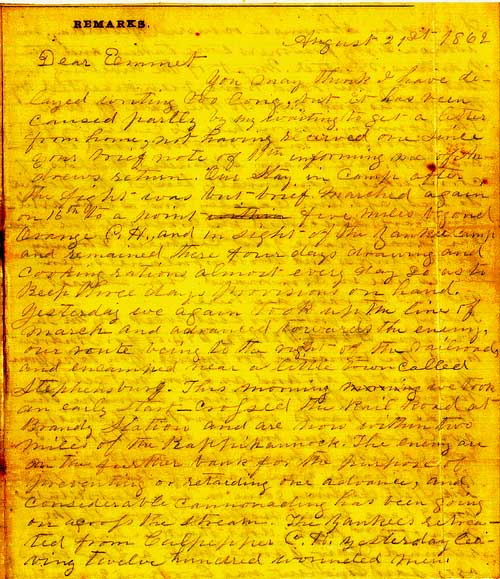 REMARKS.
August 21st 1862
Dear Emmet
You may think I have de-
layed writing too long, but it has been
caused partly by my waiting to get a letter
from home, not having received one since
your brief note of 11th informing me of the
return. Our stay in Camp after
the fight was but brief. Marched again
on 16th to a point within five miles beyond
Orange C. H. and in sight of the Yankee camp
and remained there four days drawing and
cooking rations almost every day so as to
keep three days provision on hand.
Yesterday we again took up the line of
march and advanced towards the enemy,
our route being to the right of the railroad,
and encamped near a little town called
Stephensburg. This morning we took
an early start - crossed the Rail road at
Brandy Station and are now within two
miles of the Rappahannock. The enemy are
on the further bank for the purpose of
preventing or retarding our advance, and
considerable cannonading has been going
on across the stream. The Yankees retrea-
ted from Culpepper C. H. yesterday lea-
ving twelve hundred wounded men.